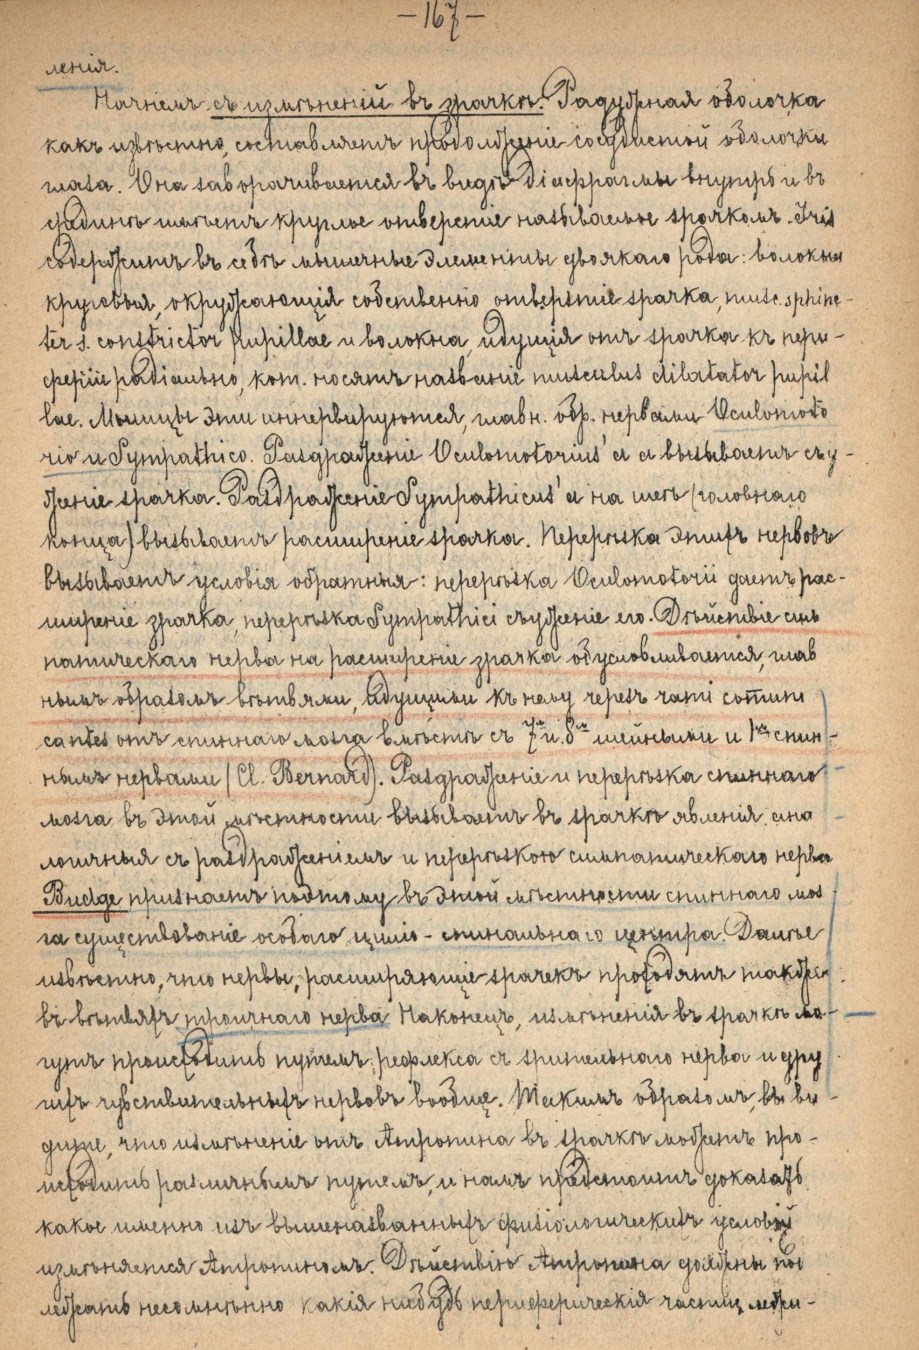 —167—
ленія.
Начнемъ съ измѣненій въ зрачкѣ. Радужная оболочка
какъ извѣстно, составляетъ продолженіе сосудистой оболочки
глаза. Она заворачивается въ видѣ діафрагмы внутрь и въ
срединѣ имѣетъ круглое отверстіе называемое зрачкомъ. Iris
содержитъ въ себѣ мышечные элементы двоякаго рода: волокна
круговыя, окружающія собственно отверстіе зрачка, musc. sphinc-
ter s. constrictor pupillae и волокна, идущія отъ зрачка къ пери-
феріи радіально, кот. носятъ названіе musculus dilatator pupil
lae. Мышцы эти иннервируются, главн. обр. нервами Oculomoto
rio и Sympathico. Раздраженіе Oculomotorius'а а вызываетъ су-
женіе зрачка. Раздраженіе Sympathicus'а на шеѣ (головнаго
конца) вызываетъ расширеніе зрачка. Перерѣзка этихъ нервовъ
вызываетъ условія обратныя: перерѣзка Oculomotorii даетъ рас-
ширеніе зрачка, перерѣзка Sympathici съуженіе его. Дѣйствіе сим
патическаго нерва на расширеніе зрачка обусловливается, глав
нымъ образомъ вѣтвями, идущими къ нему черезъ rami commu
cantes отъ спиннаго мозга вмѣстѣ съ 7м и 8м шейными и 1мъ спин-
нымъ нервами (Cl. Bernard). Раздраженіе и перерѣзка спиннаго
мозга въ этой мѣстности вызываетъ въ зрачкѣ явленія ана
логичныя съ раздраженіемъ и перерѣзкою симпатическаго нерва
Budge признаетъ поэтому въ этой мѣстности спиннаго моз
га существованіе особаго циліо-спинальнаго центра. Далѣе
извѣстно, что нервы, расширяющіе зрачекъ проходятъ также
въ вѣтвяхъ троичнаго нерва Наконецъ, измѣненія въ зрачкѣ мо-
гутъ происходить путемъ рефлекса съ зрительнаго нерва и дру
гихъ чувствительныхъ нервовъ вообще. Такимъ образомъ, вы ви-
дите, что измѣненіе отъ Атропина въ зрачкѣ можетъ про-
исходить различнымъ путемъ, и намъ предстоитъ доказать
какое именно изъ вышеназванныхъ физіологическихъ условій
измѣняется Атропиномъ. Дѣйствію Атропина должны под
лежать несомнѣнно какія нибудь периферическія частиц лежи-